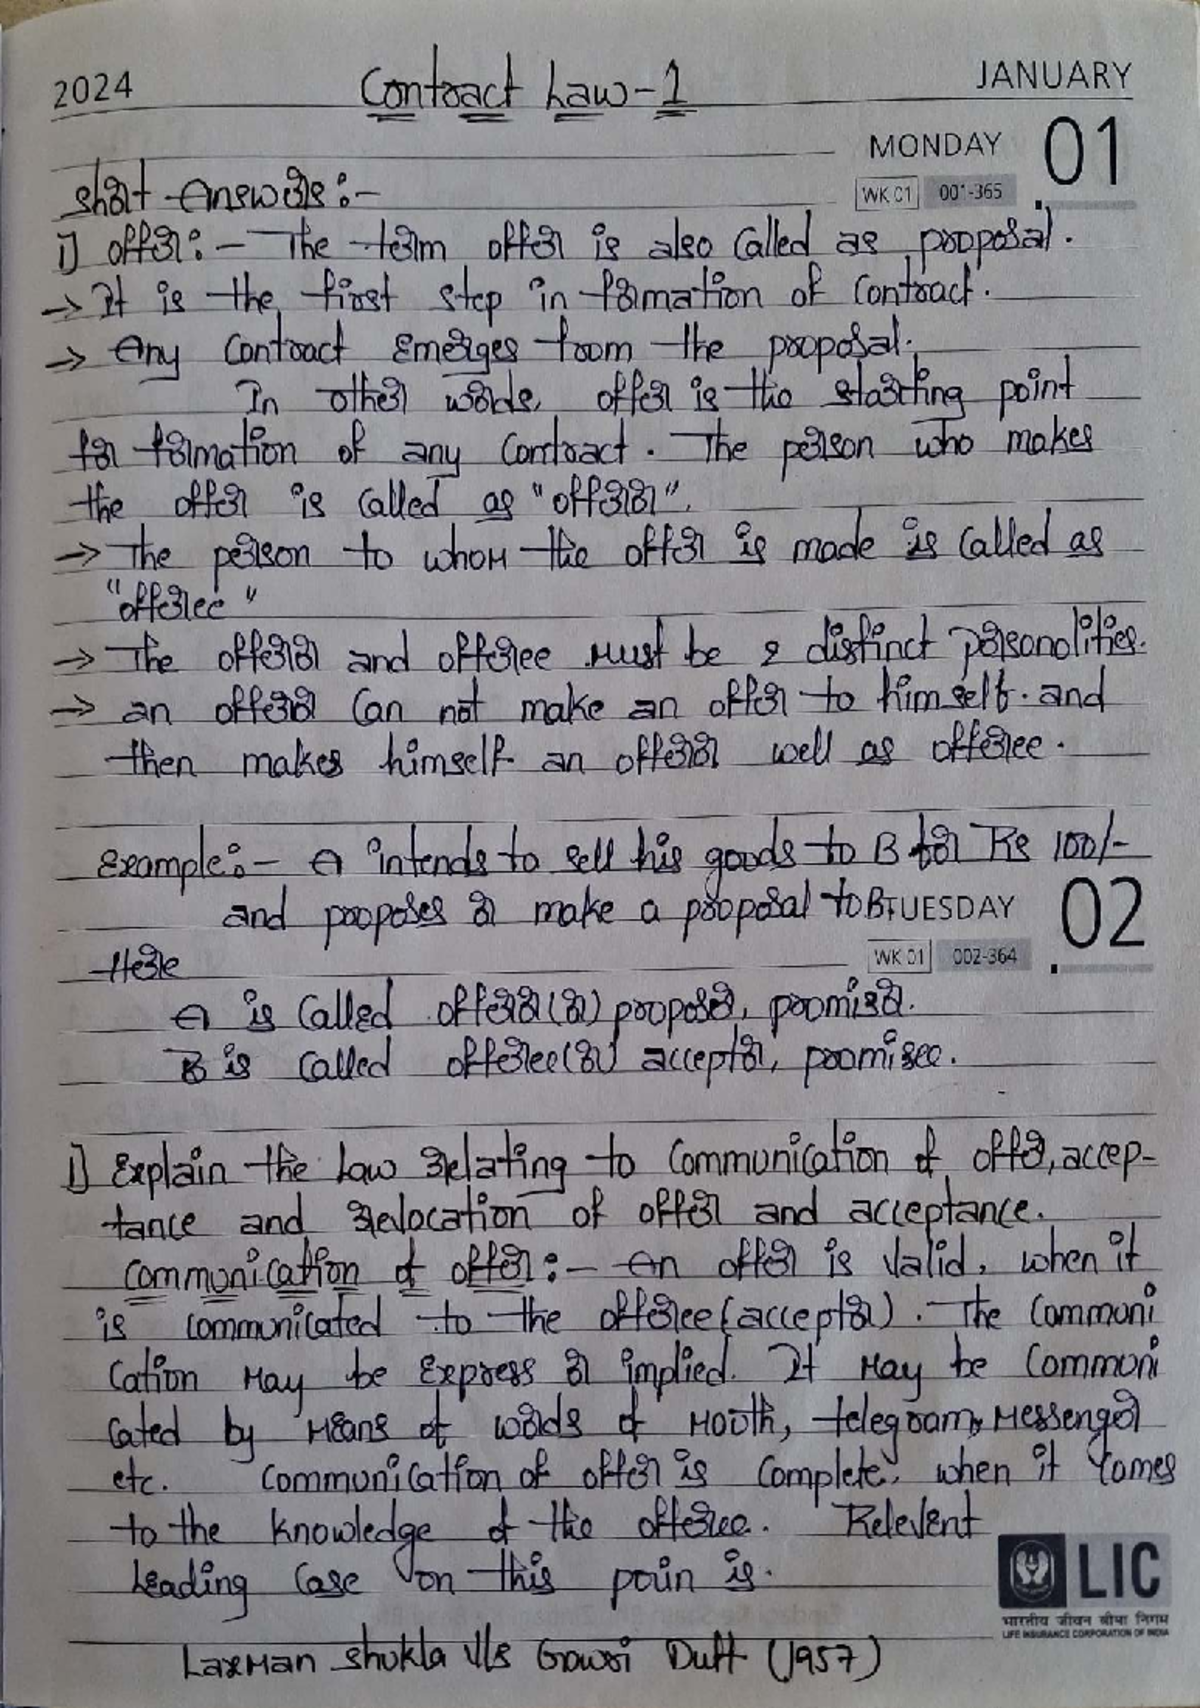 2024
Contract Law-1
JANUARY
MONDAY 01
WK 01 001-365
Short Answers:-
1) offer:- The term offer is also called as proposal.
→ It is the first step in formation of contract.
→ Any contract emerges from the proposal.
In other words, offer is the starting point
for formation of any contract. The person who makes
the offer is called as "offeror".
→ The person to whom the offer is made is called as
"offeree"
→ The offeror and offeree must be 2 distinct personolities.
→ an offeror can not make an offer to himself. and
then makes himself an offeror well as offeree.
Example:- A intends to sell his goods to B for Rs 100/-
and proposes or make a proposal to B.
TUESDAY 02
WK 01 002-364
Here
A is called offeror (or) proposer, promisor.
B is called offeree (or) acceptor, promisee.
1) Explain the law relating to communication of offer, accep-
tance and relocation of offer and acceptance.
Communication of offer:- An offer is valid, when it
is communicated to the offeree (acceptor). The communi
cation may be express or implied. It may be communi
cated by means of words of mouth, telegram, messenger
etc. Communication of offer is complete, when it comes
to the knowledge of the offeree. Relevent
leading case on this poin is.
Laxman shukla v/s Gowri Dutt (1957)
LIC
भारतीय जीवन बीमा निगम
LIFE INSURANCE CORPORATION OF INDIA